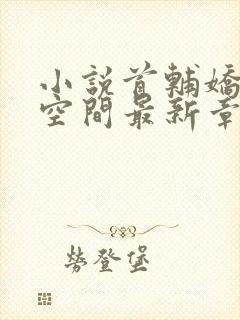 小說首輔嬌
空間最新章
勞登堡